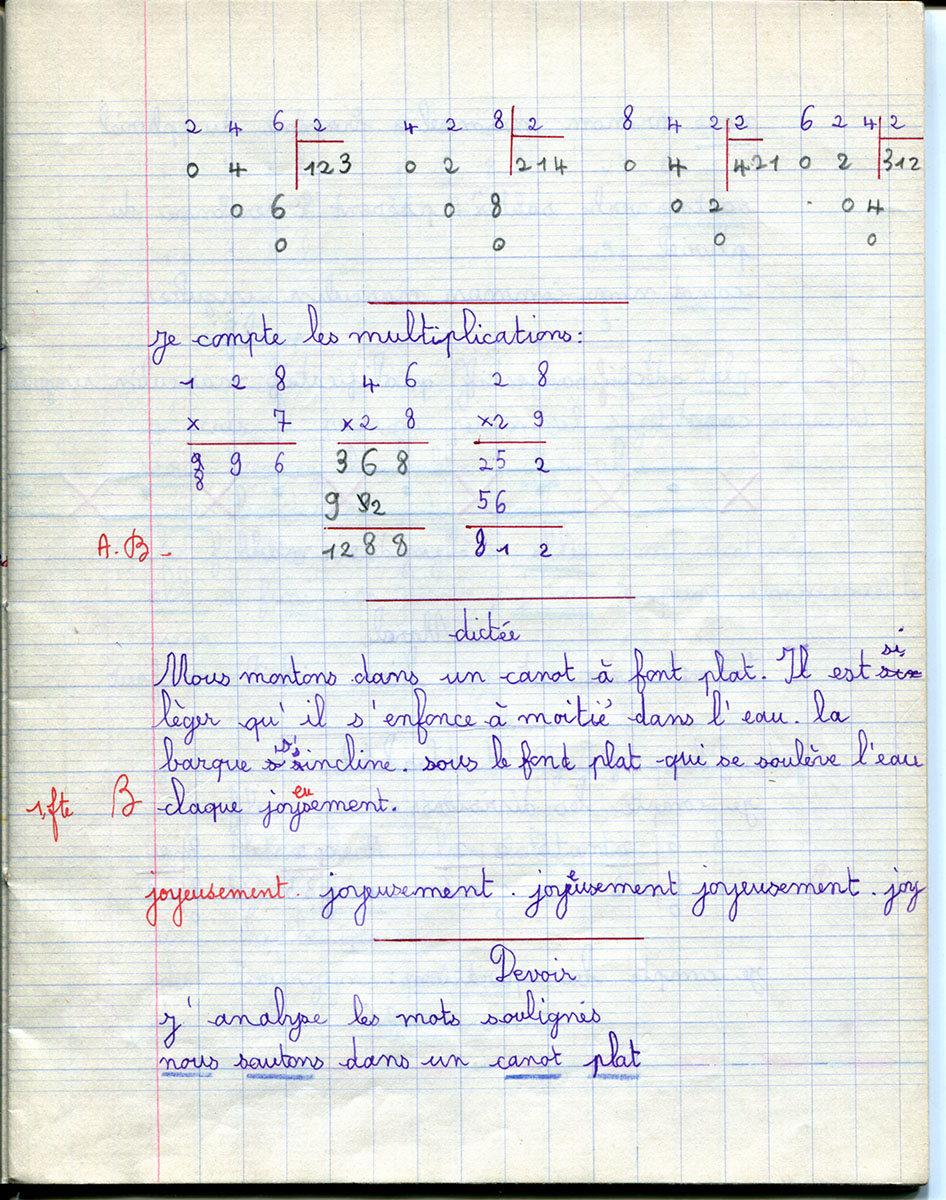 2 4 6 2 4 2 8 2 8 4 2 2 6 2 4 2
0 4 123 0 2 214 0 4 421 0 2 312
0 6 0 8 0 2 0 4
0 0 0 0
Je compte les multiplications:
1 2 8 4 6 2 8
x 7 x2 8 x2 9
8 9 6 3 6 8 25 2
9 2 56
A.B - 12 8 8 8 1 2
dictée
Nous montons dans un canot à font plat. Il est si
lèger qu'il s'enfonce à moitié dans l'eau. la
barque s'incline. sous le fond plat qui se soulève l'eau
1 fte B claque joyeusement.
joyeusement. joyeusement. joyeusement joyeusement. joy
Devoir
J'analyse les mots soulignés
nous sautons dans un canot plat